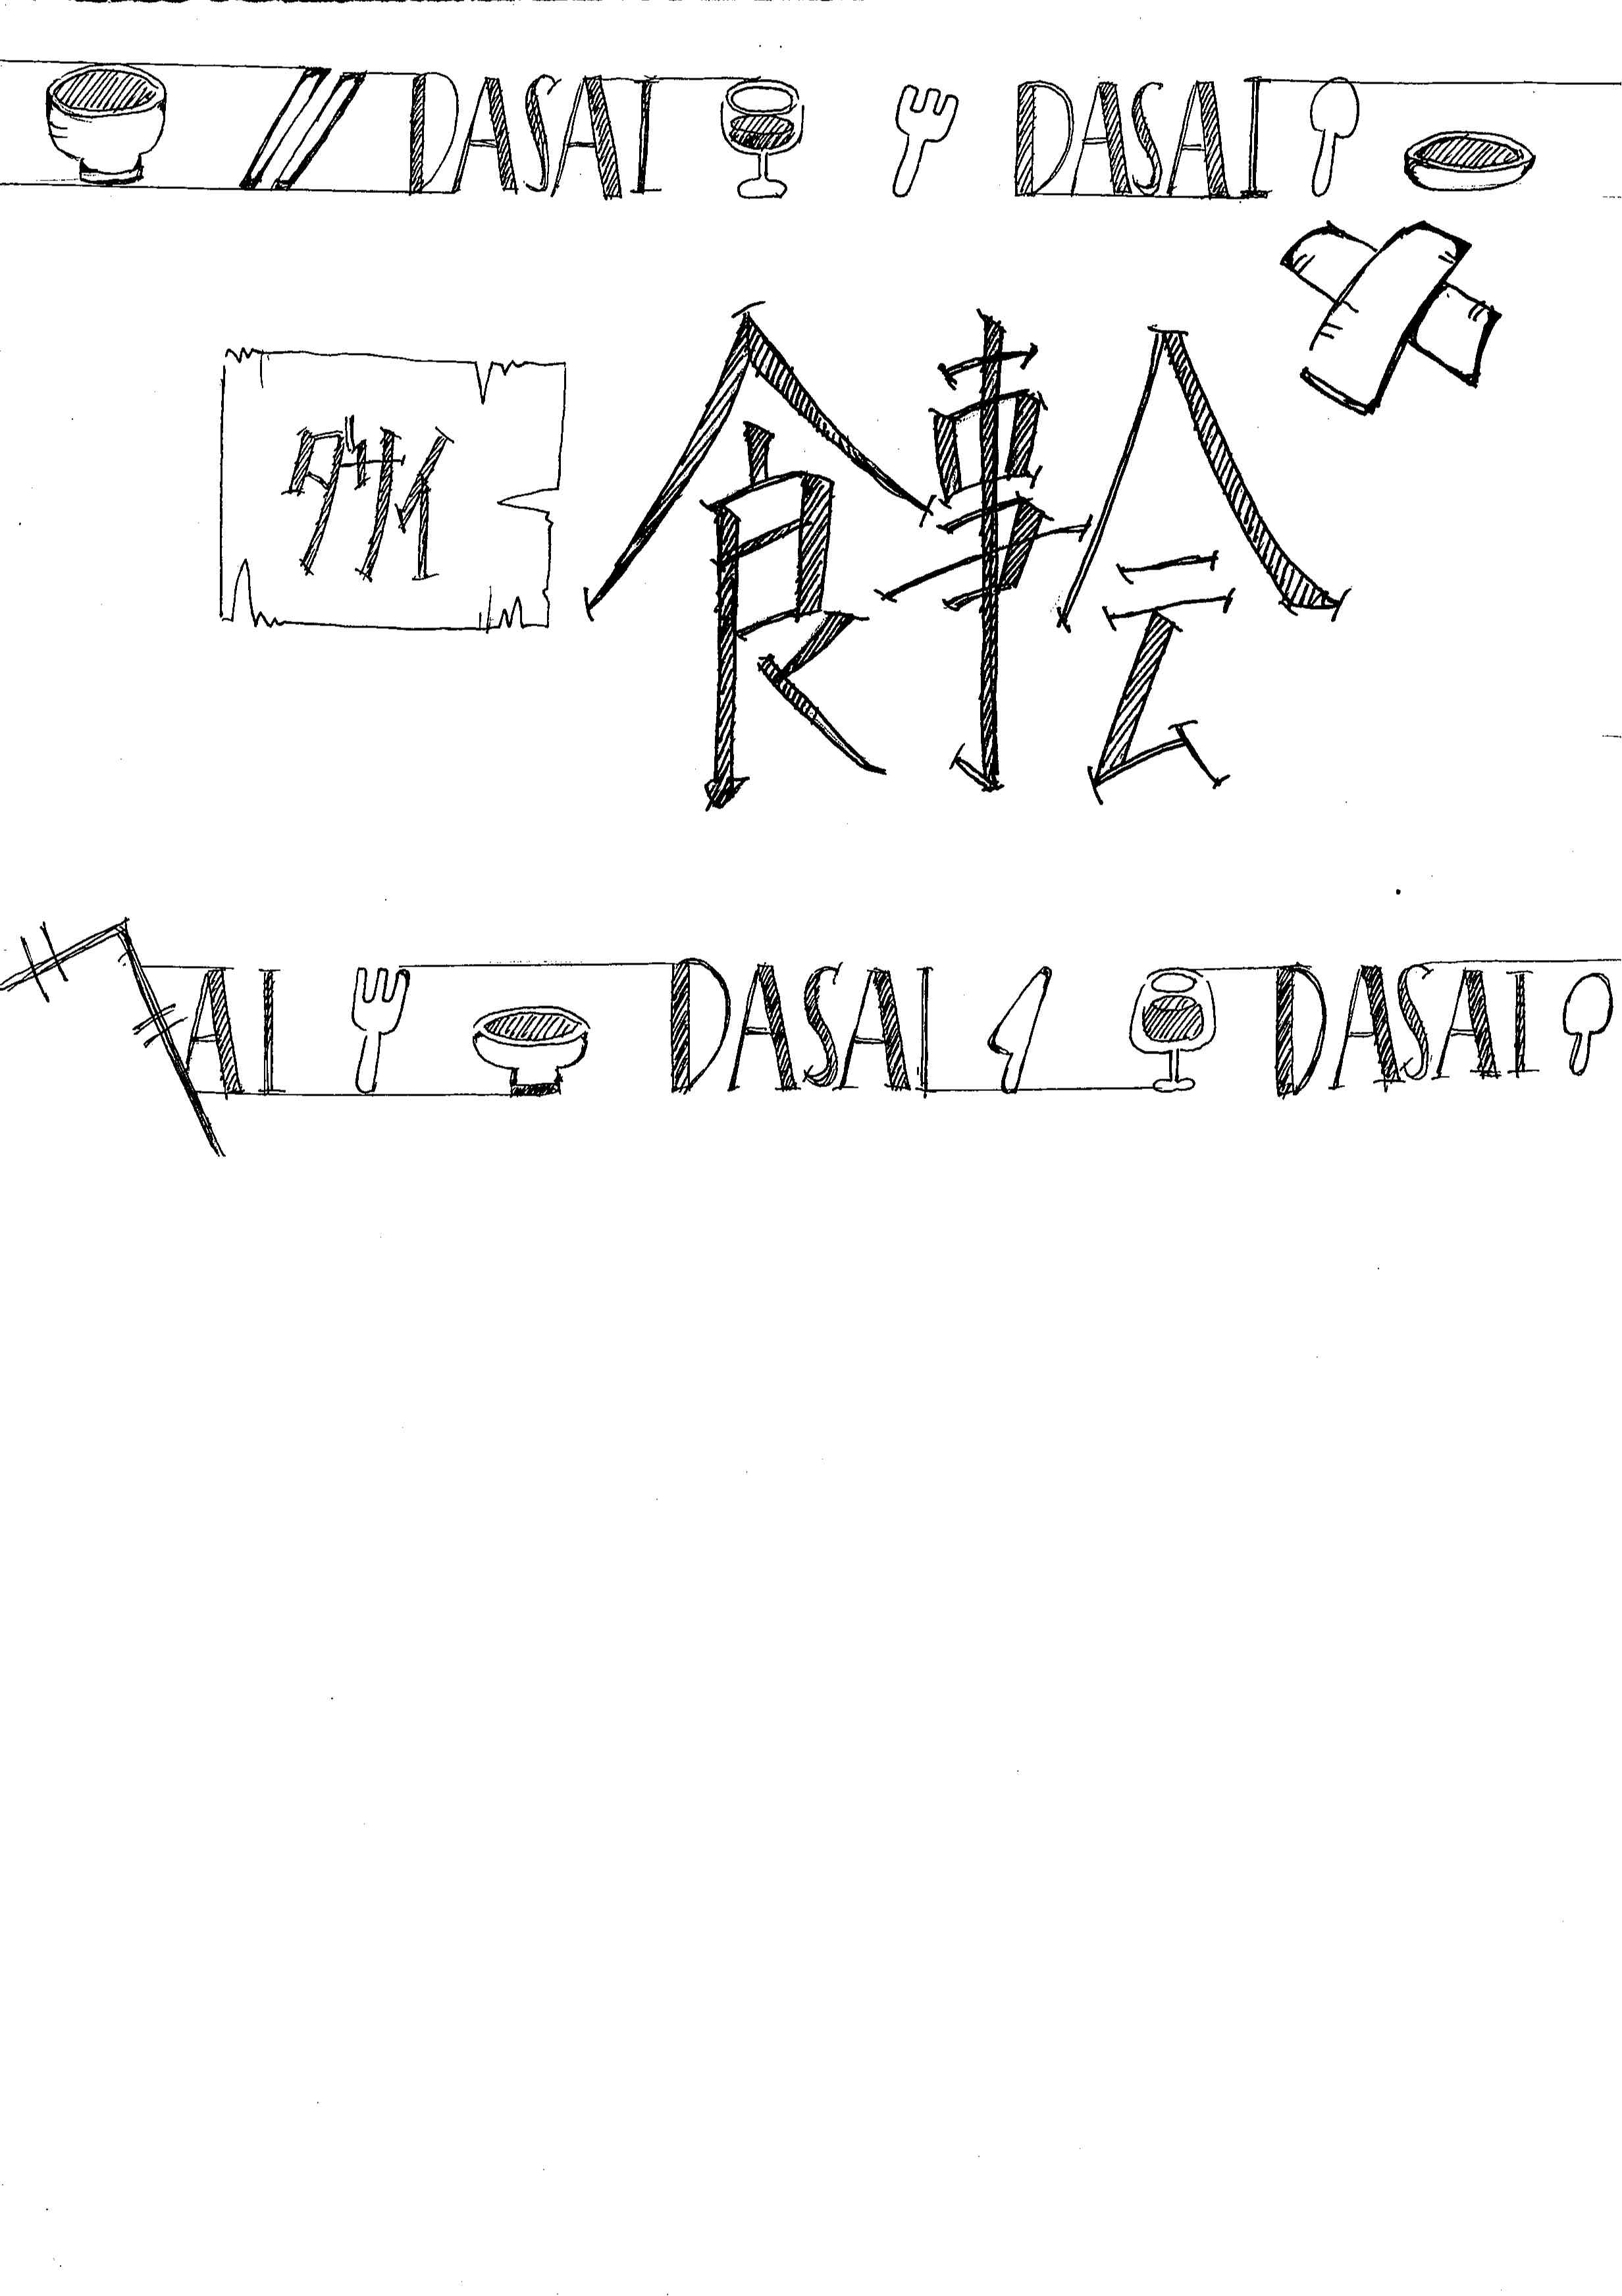 DASAI DASAI
ダサイ
食事会
AI DASAI DASAI